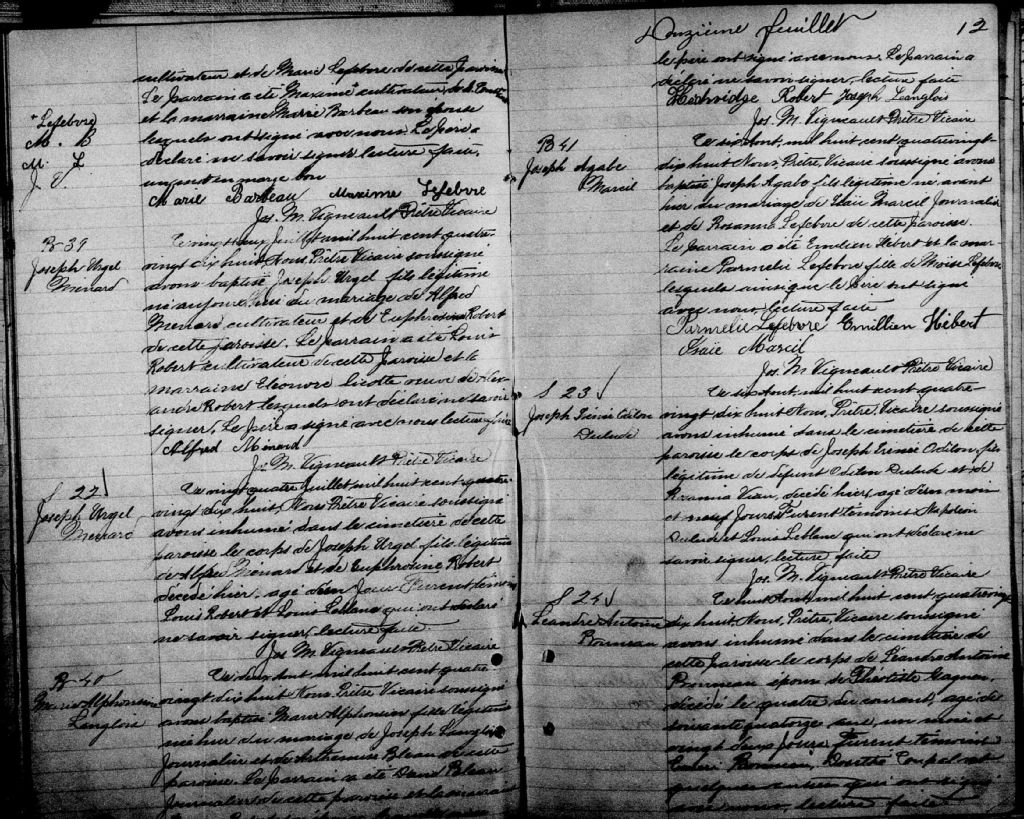 cultivateur et de Marie Lefebvre de cette Paroisse
Le parrain a été Maxime cultivateur
et la marraine Marie Barbeau son épouse
lesquels ont signé avec nous. Le père a
déclaré ne savoir signer lecture faite.
un renvoi en marge bon
Marie Barbeau Maxime Lefebvre
Jos. M. Vigneault Ptre Vicaire
* Lefebvre
M. B
M. L
J. V.
B-39
Joseph Urgel
Menard
Le vingt deux Juillet mil huit cent quatre
vingt dix huit Nous Prêtre Vicaire soussigné
avons baptisé Joseph Urgel fils légitime
né aujourd'hui du mariage de Alfred
Menard cultivateur et de Euphrosine Robert
de cette paroisse. Le parrain a été Louis
Robert cultivateur de cette Paroisse et la
marraine Eléonore Licotte veuve de Alex
andre Robert lesquels ont déclaré ne savoir
signer. Le père a signé avec nous lecture faite
Alfred Ménard
Jos M. Vigneault Ptre Vicaire
S 22
Joseph Urgel
Menard
Le vingt quatre Juillet mil huit cent quatre
vingt dix huit Nous Prêtre Vicaire soussigné
avons inhumé dans le cimetière de cette
paroisse le corps de Joseph Urgel fils légitime
de Alfred Ménard et de Euphrosine Robert
décédé hier, agé d'un Jour Furent témoins
Louis Robert et Louis Leblanc qui ont déclaré
ne savoir signer, lecture faite
Jos M. Vigneault Ptre Vicaire
B-40
Marie Alphonsine
Langlois
Le deux Aout mil huit cent quatre
vingt dix huit Nous Prêtre Vicaire soussigné
avons baptisé Marie Alphonsine fille légitime
née hier du mariage de Joseph Langlois
Journalier et de Arthémise Bleau de cette
paroisse. Le parrain a été David Bleau
Journalier de cette paroisse et la marraine
Douzième feuillet 12
le père ont signé avec nous. Le parrain a
déclaré ne savoir signer, lecture faite
Hedwidge Robert Joseph Langlois
Jos. M. Vigneault Ptre Vicaire
B 41
Joseph Agabe
Marcil
Le six Aout, mil huit cent quatrevingt
dix huit Nous, Prêtre, Vicaire soussigné avons
baptisé Joseph Agabe fils légitime né avant
hier du mariage de Isaïe Marcil Journalier
et de Rosanna Lefebvre de cette paroisse.
Le parrain a été Emelien Hébert et la mar
raine Parmelie Lefebvre fille de Moïse Lefebvre
lesquels ainsi que le Père ont signé
avec nous, lecture faite
Parmelie Lefebvre Emillien Hébert
Isaïe Marcil
Jos. M. Vigneault Ptre Vicaire
S 23
Joseph Irénée Odilon
Dulude
Le six Aout, mil huit cent quatre
vingt dix huit Nous, Prêtre, Vicaire soussigné
avons inhumé dans le cimetière de cette
paroisse le corps de Joseph Irénée Odilon, fils
légitime de défunt Odilon Dulude et de
Rosanna Viau, décédé hier, agé d'un mois
et neuf Jours Furent témoins Napoléon
Dulude et Louis Leblanc qui ont déclaré ne
savoir signer, lecture faite
Jos. M. Vigneault Ptre Vicaire
S 24
Léandre Antoine
Bonneau
Le huit Aout, mil huit cent quatrevingt
dix huit, Nous, Prêtre, Vicaire soussigné
avons inhumé dans le cimetière de
cette paroisse le corps de Léandre Antoine
Bonneau époux de Théotiste Gagnon
décédé le quatre du courant, agé de
soixante quatorze ans, un mois et
vingt deux Jours. Furent témoins
Bonneau, Coupal et
quelques autres qui ont signé
avec nous, lecture faite